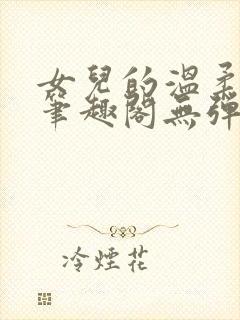 女兒的溫柔
筆趣閣無彈
冷煙花